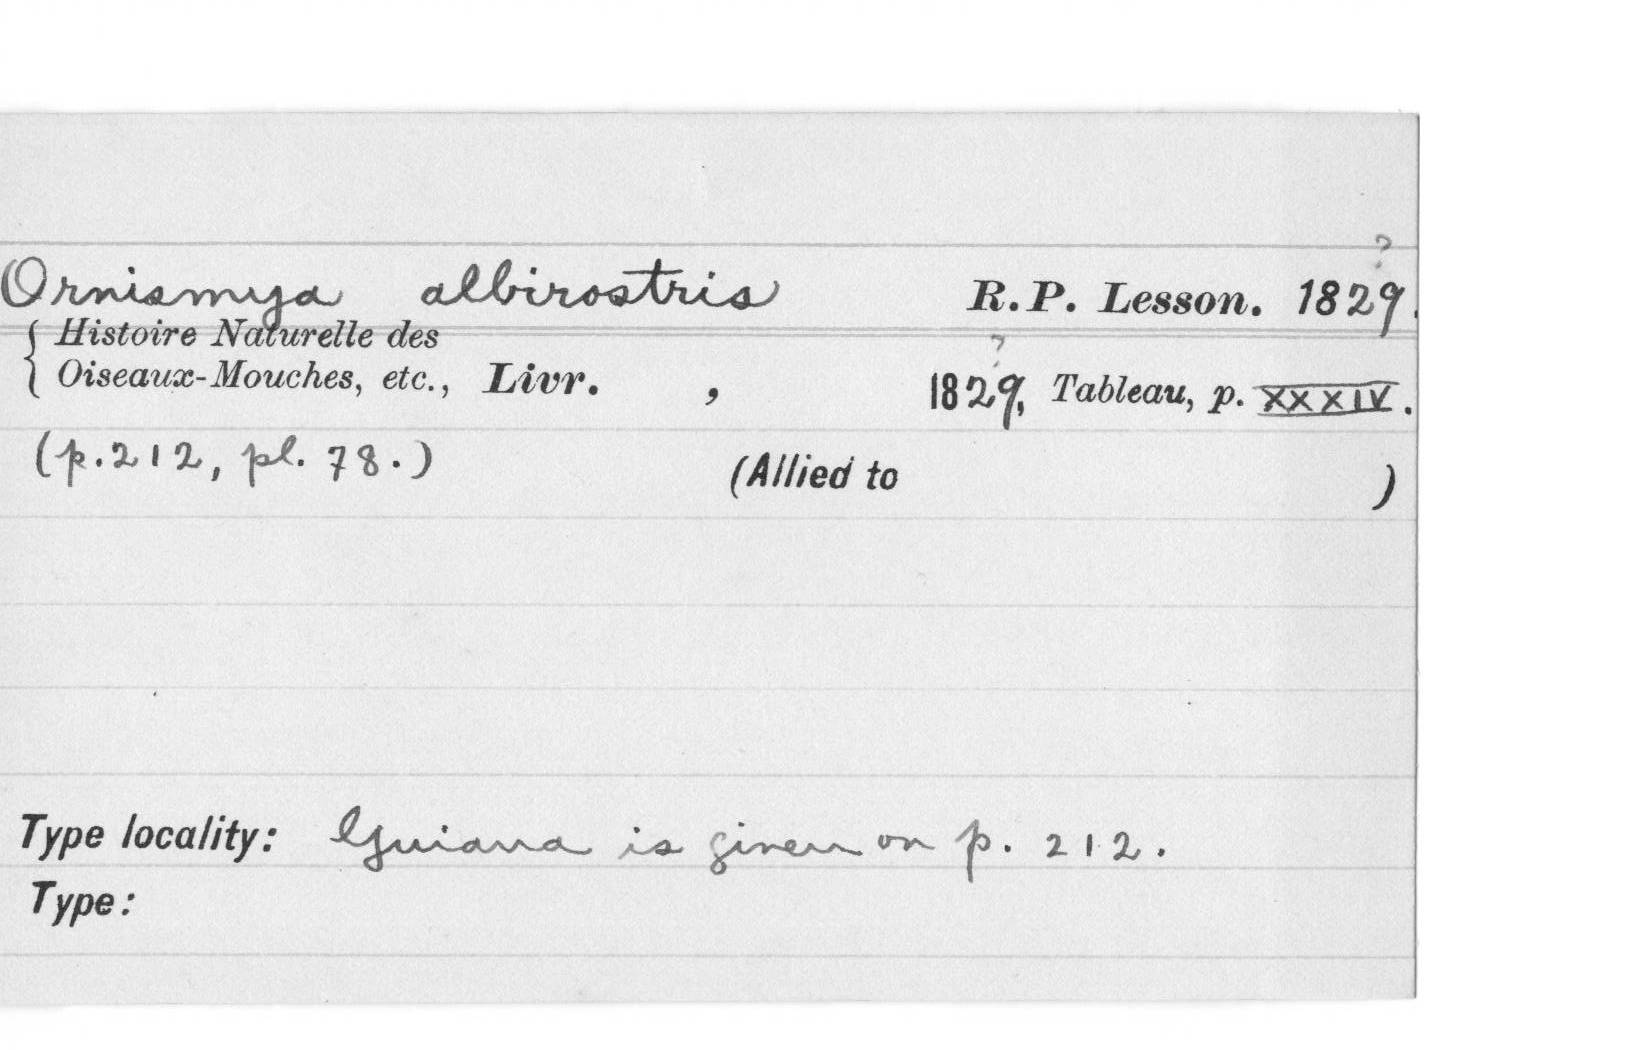 ?
Ornismya albirostris R.P. Lesson. 1829.
{ Histoire Naturelle des
Oiseaux-Mouches, etc., Livr. , 1829, Tableau, p. XXXIV.
?
(p. 212, pl. 78.) (Allied to )
Type locality: Guiana is given on p. 212.
Type: